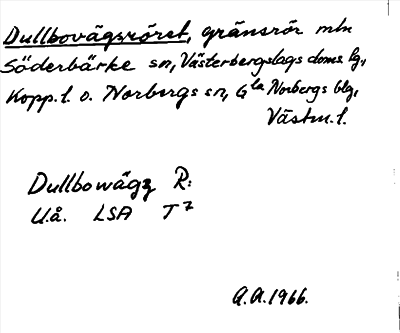 Dullbovägsröret, gränsrör mln
Söderbärke sn, Västerbergslags doms. lg.,
Kopp. l. o. Norbergs sn, Gla Norbergs blg,
Västm. l.
Dullbowägz R:
U.å. LSA T 7
A.A. 1966.